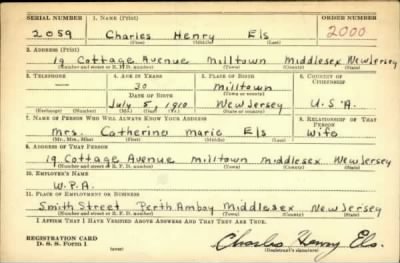 SERIAL NUMBER 1. NAME (Print) ORDER NUMBER
2059 Charles Henry Els 2000
(First) (Middle) (Last)
2. ADDRESS (Print)
19 Cottage Avenue Milltown Middlesex New Jersey
(Number and street or R. F. D. number) (Town) (County) (State)
3. TELEPHONE 4. AGE IN YEARS 5. PLACE OF BIRTH 6. COUNTRY OF CITIZENSHIP
30 Milltown
DATE OF BIRTH (Town or county)
July 5, 1910 New Jersey U.S.A.
(Exchange) (Number) (Mo.) (Day) (Yr.) (State or country)
7. NAME OF PERSON WHO WILL ALWAYS KNOW YOUR ADDRESS 8. RELATIONSHIP OF THAT PERSON
Mrs. Catherine Marie Els Wife
(Mr., Mrs., Miss) (First) (Middle) (Last)
9. ADDRESS OF THAT PERSON
19 Cottage Avenue Milltown Middlesex New Jersey
(Number and street or R. F. D. number) (Town) (County) (State)
10. EMPLOYER'S NAME
W.P.A.
11. PLACE OF EMPLOYMENT OR BUSINESS
Smith Street Perth Amboy Middlesex New Jersey
(Number and street or R. F. D. number) (Town) (County) (State)
I AFFIRM THAT I HAVE VERIFIED ABOVE ANSWERS AND THAT THEY ARE TRUE.
REGISTRATION CARD
D. S. S. Form 1
Charles Henry Els.
(Registrant's signature)